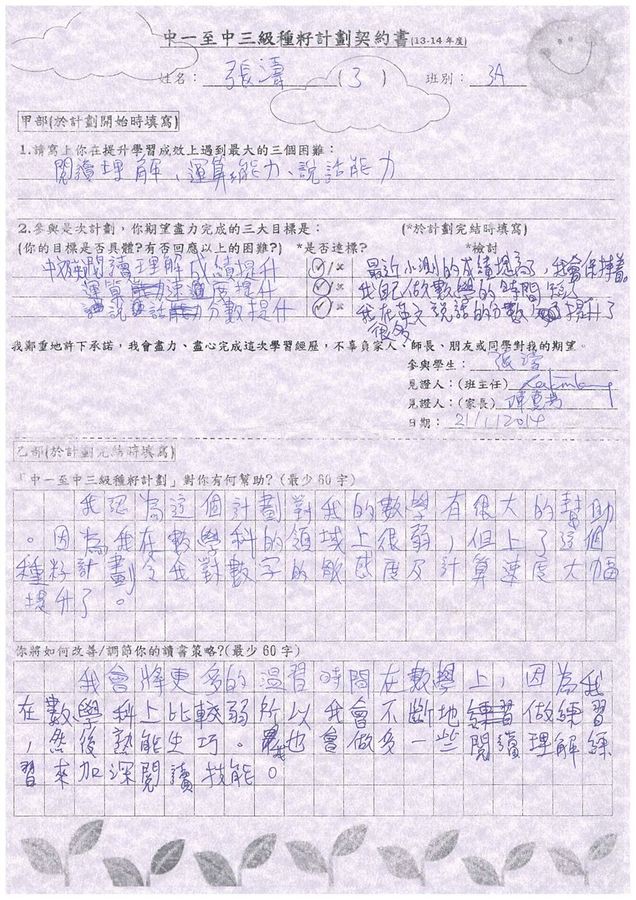 中一至中三級種籽計劃契約書(13-14年度)
姓名： 張濤 (3) 班別： 3A
甲部(於計劃開始時填寫)
1.請寫上你在提升學習成效上遇到最大的三個困難：
閱讀理解、運算能力、說話能力
2.參與是次計劃，你期望盡力完成的三大目標是： (*於計劃完結時填寫)
(你的目標是否具體?有否回應以上的困難?) *是否達標? *檢討
閱讀理解成績提升 ✓/× 最近小測的成績提高了，我會保持着。
運算速度提升 ✓/× 我自己做數學的時間短
說話分數提升 ✓/× 我在英文說話的分數提升了
很多
我鄭重地許下承諾，我會盡力、盡心完成這次學習經歷，不辜負家人、師長、朋友或同學對我的期望。
參與學生： 張濤
見證人：(班主任)
見證人：(家長)
日期： 21/1/2014
乙部(於計劃完結時填寫)
「中一至中三級種籽計劃」對你有何幫助?(最少 60 字)
我認為這個計劃對我的數學有很大的幫助
。因為我在數學科的領域上很弱，但上了這個
種籽計劃令我對數字的敏感度及計算速度大幅
提升了。
你將如何改善/調節你的讀書策略?(最少 60 字)
我會將更多的溫習時間在數學上，因為我
在數學科上比較弱所以我會不斷地做練習
，然後熟能生巧。我也會做多一些閱讀理解練
習來加深閱讀技能。